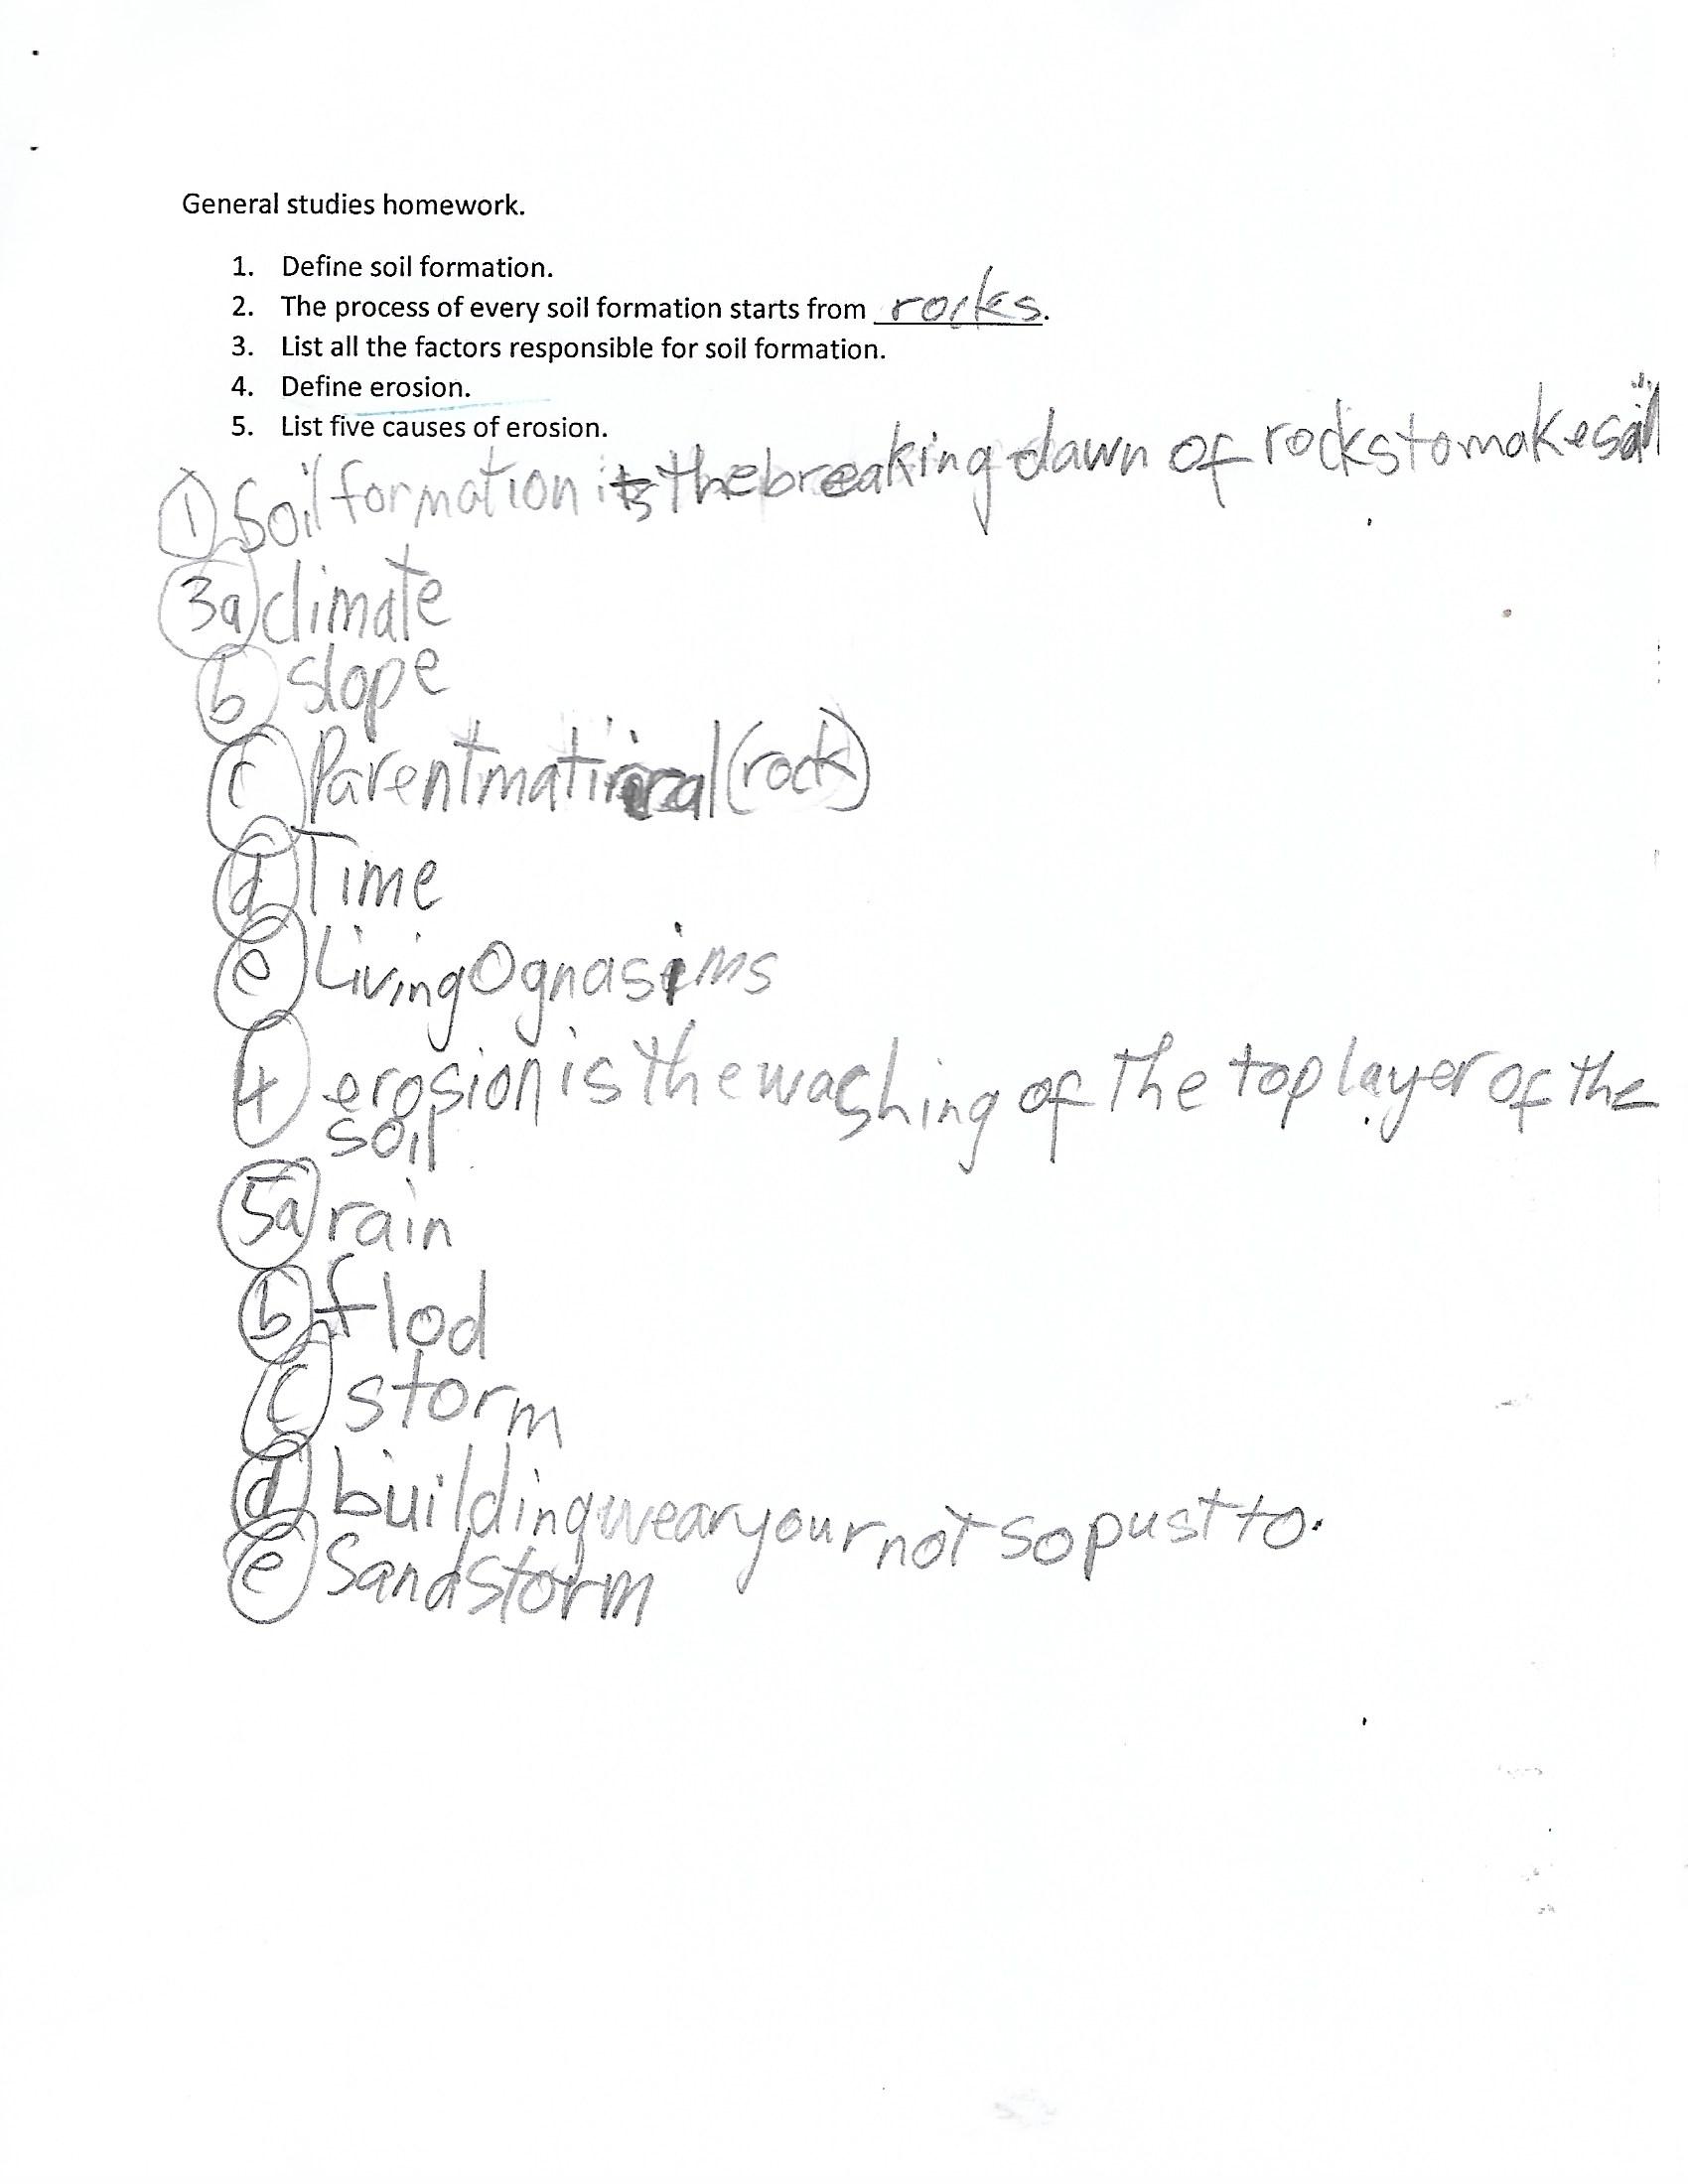 General studies homework.
1. Define soil formation.
2. The process of every soil formation starts from rocks.
3. List all the factors responsible for soil formation.
4. Define erosion.
5. List five causes of erosion.
1 Soil formation is the breaking dawn of rocks to make soil
3a climate
b slope
c Parent matiral (rock)
d Time
e Living Ognasims
4 erosion is the washing of the top layer of the
soil
5a rain
b flod
c storm
d building wear your not so pust to.
e Sand storm